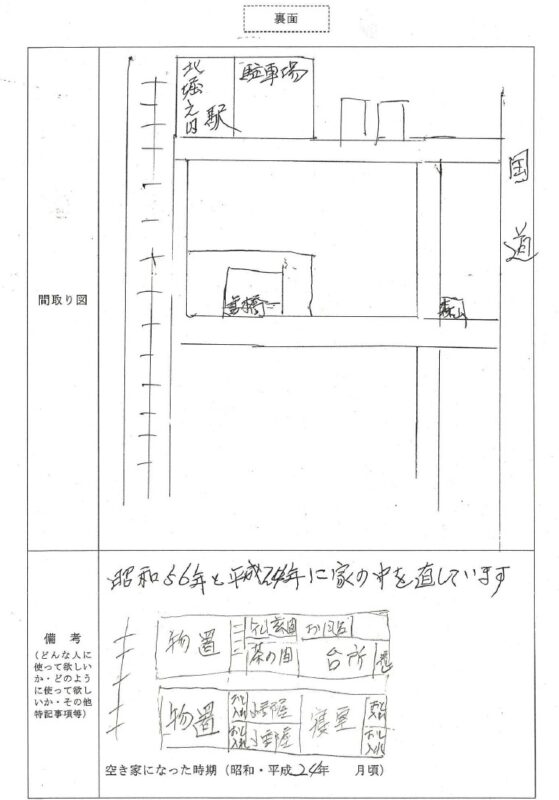 裏面
北堀之内駅
駐車場
国道
高橋
森山
間取り図
昭和56年と平成24年に家の中を直しています
備考
(どんな人に
使って欲しい
か・どのよう
に使って欲し
いか・その他
特記事項等)
物置
玄関
お風呂
茶の間
台所
物置
おし入れ
小部屋
寝室
おし入れ
おし入れ
小部屋
おし入れ
空き家になった時期(昭和・平成24年 月頃)